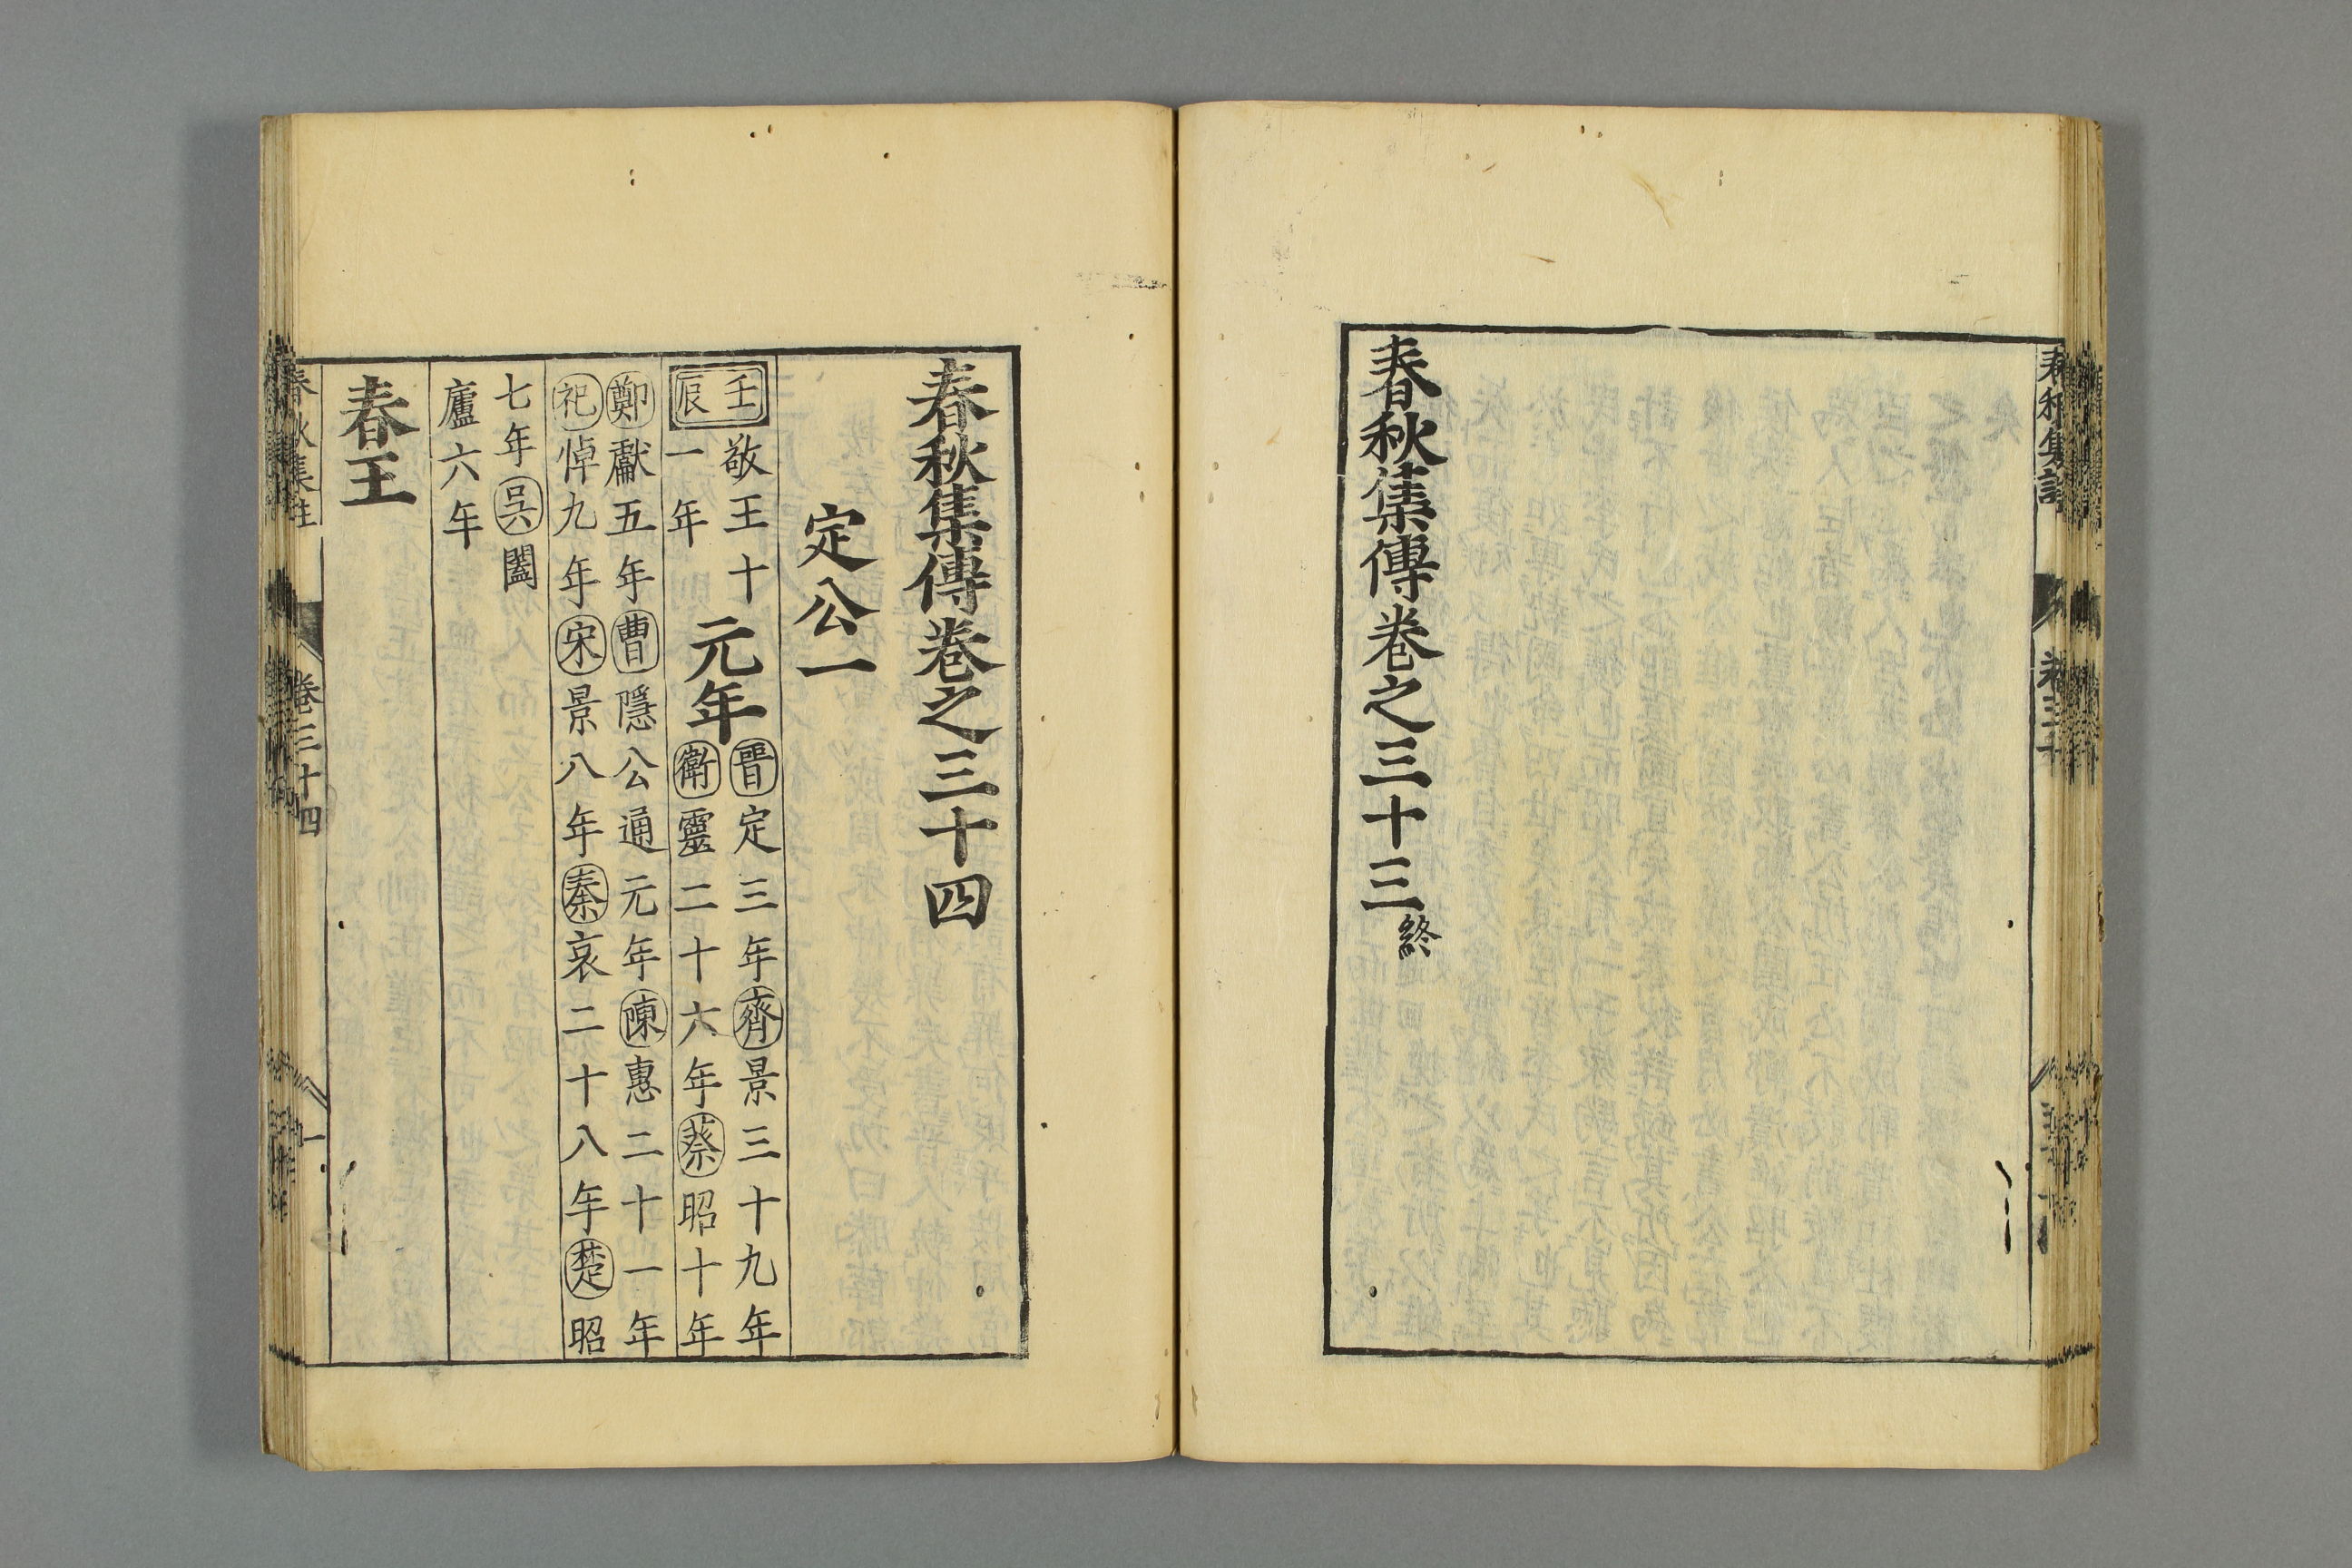 春秋集傳卷之三十三終
春秋集傳卷之三十四
定公一
壬辰
敬王十一年
元年
晉定三年齊景三十九年
衛靈二十六年蔡昭十年
鄭獻五年曹隱公通元年陳惠二十一年
祀悼九年宋景八年秦哀二十八年楚昭
七年吳闔
廬六年
春王
春秋集註
卷三十四
一